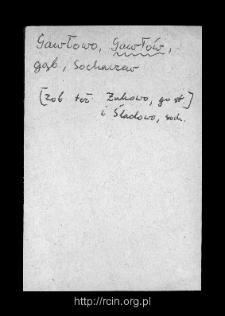 Gawłowo, Gawłów,
gąb, Sochaczew
[Zob też Żukowo, gost]
i Śladowo, soch.
http://rcin.org.pl